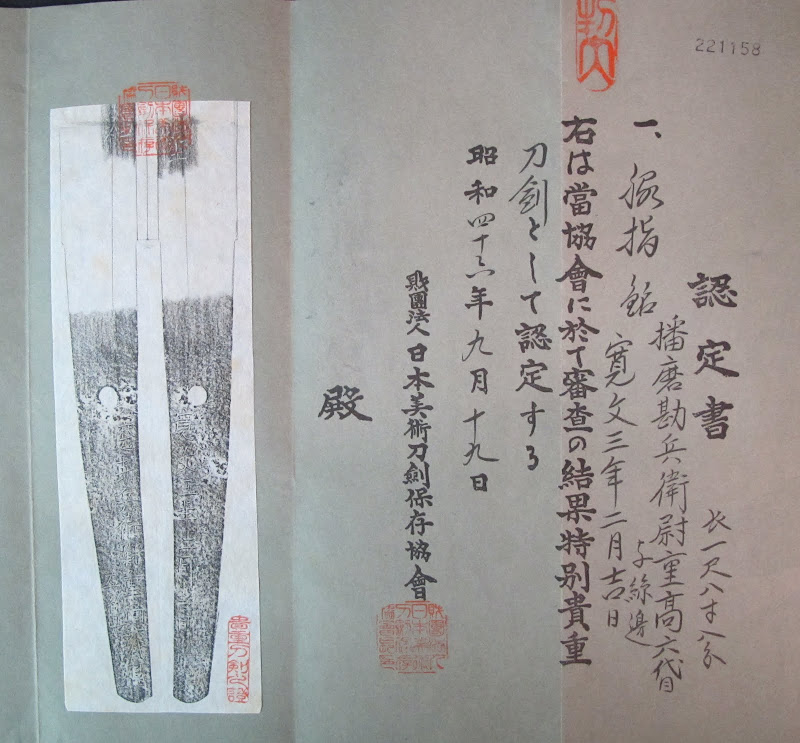 221158
認定書
長一尺八寸八分
一、脇指 銘
播磨勘兵衛尉重高六代目
寛文三年二月吉日
右は當協會に於て審査の結果特別貴重
刀劍として認定する
昭和四十六年九月十九日
財團法人日本美術刀劍保存協會
殿
貴重刀剣之證